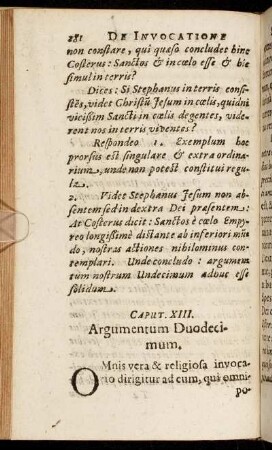 281 DE INVOCATIONE
non constare, qui quæso concludet hinc
Costerus: Sanctos & in cœlo esse & hîc
simul in terris?
Dices: Si Stephanus in terris consi-
stēs, videt Christū Iesum in cœlis, quidni
vicissim Sancti in cœlis degentes, vide-
rent nos in terris viventes?
Respondeo 1. Exemplum hoc
prorsus est singulare & extra ordina-
rium, unde non potest constitui regu-
la.
2. Videt Stephanus Iesum non ab-
sentem sed in dextra Dei præsentem:
At Costerus dicit: Sanctos è cœlo Empy-
reo longissimè distante ab inferiori mū-
do, nostras actiones nihilominus con-
templari. Unde concludo: argumen-
tum nostrum Undecimum adhuc esse
solidum.
CAPUT. XIII.
Argumentum Duodeci-
mum.
OMnis vera & religiosa invoca-
tio dirigitur ad eum, qui omni-
po-